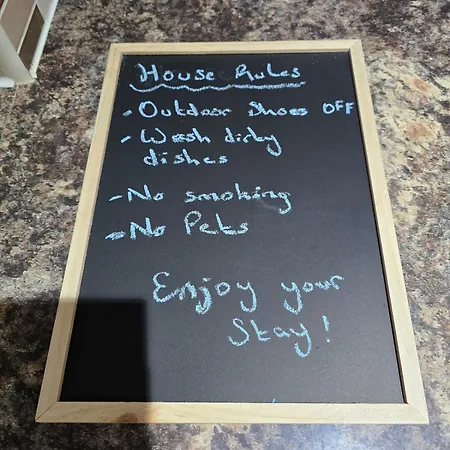 House Rules
- Outdoor Shoes OFF
- Wash dirty
dishes
- No smoking
- No Pets
Enjoy your
Stay!